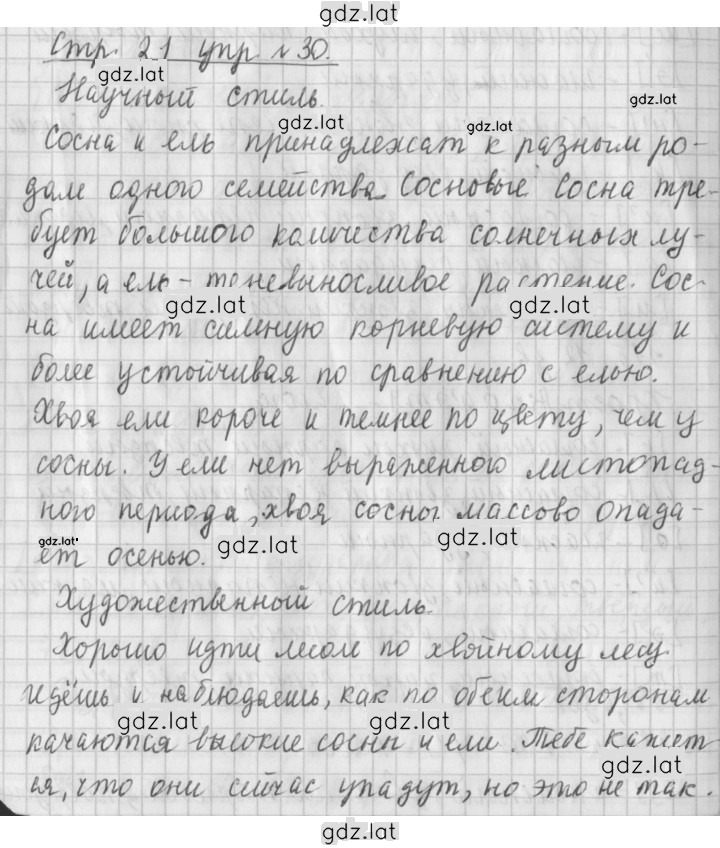 gdz.lat
Стр. 21 упр №30.
gdz.lat
Научный стиль.
gdz.lat
gdz.lat
gdz.lat
Сосна и ель принадлежат к разным ро-
дам одного семейства Сосновые Сосна тре-
бует большого количества солнечных лу-
чей, а ель - теневыносливое растение. Сос-
gdz.lat gdz.lat
на имеет сильную корневую систему и
более устойчивая по сравнению с елью.
Хвоя ели короче и темнее по цвету, чем у
сосны. У ели нет выраженного листопад-
ного периода, хвоя сосны массово опада-
gdz.lat gdz.lat gdz.lat
ет осенью.
Художественный стиль.
Хорошо идти лесом по хвойному лесу
идёшь и наблюдаешь, как по обеим сторонам
gdz.lat gdz.lat
качаются высокие сосны и ели. Тебе кажет
gdz.lat
ся, что они сейчас упадут, но это не так.
gdz.lat